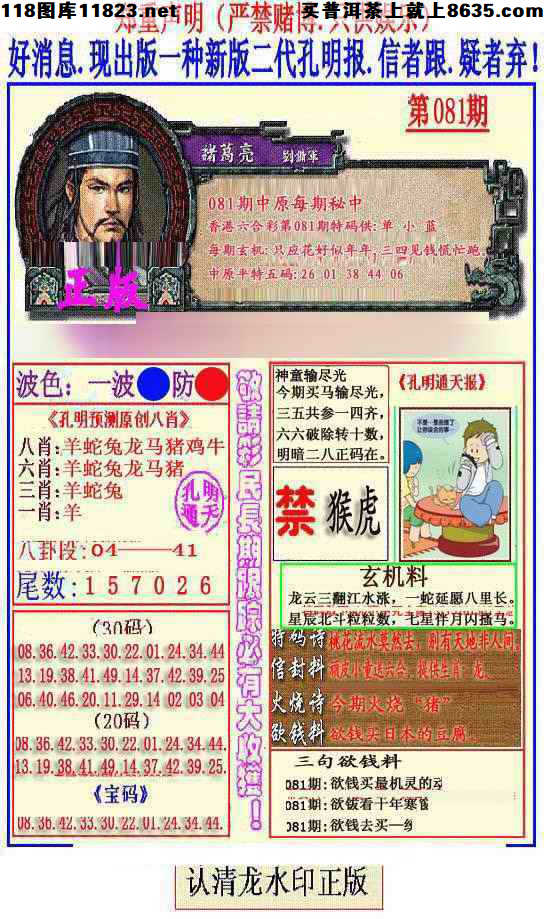 118图库11823.net
买普洱茶上就上8635.com
郑重声明（严禁赌博.只供娱乐）
好消息.现出版一种新版二代孔明报.信者跟.疑者弃！
第081期
諸葛亮 劉備軍
081期中原每期秘中
香港六合彩第081期特码供:单 小 蓝
每期玄机:只应花好似年年,三四见钱慌忙跑.
中原平特五码:26 01 38 44 06
正版
波色：一波 防
《孔明预测原创八肖》
八肖:羊蛇兔龙马猪鸡牛
六肖:羊蛇兔龙马猪
三肖:羊蛇兔
一肖:羊
孔明
通天
八卦段:04——41
尾数:157026
(30码)
08.36.42.33.30.22.01.24.34.44
13.19.38.41.49.14.37.42.39.25
06.40.46.20.11.29.14 02 03 04
(20码)
08.36.42.33.30.22.01.24.34.44.
13.19.38.41.49.14.37.42.39.25.
《宝码》
08.36.42.33.30.22.01.24.34.44.
敬請彩民長期跟踪必有大收獲！
神童输尽光
今期买马输尽光，
三五共参一四齐，
六六破除转十数，
明暗二八正码在。
《孔明通天报》
禁
猴虎
玄机料
龙云三翻江水涨，一蛇延愿八里长。
星辰北斗粒粒数，七星伴月闪搔鸟。
特码诗 桃花流水莫然去，别有天地非人间
信封料 顽皮小童送六合，提供生肖：龙、
火烧诗 今期火烧“猪”
欲钱料 欲钱买日本的豆腐。
三句欲钱料
081期:欲钱买最机灵的动
081期:欲钱看十年寒窗
081期:欲钱去买一
认清龙水印正版